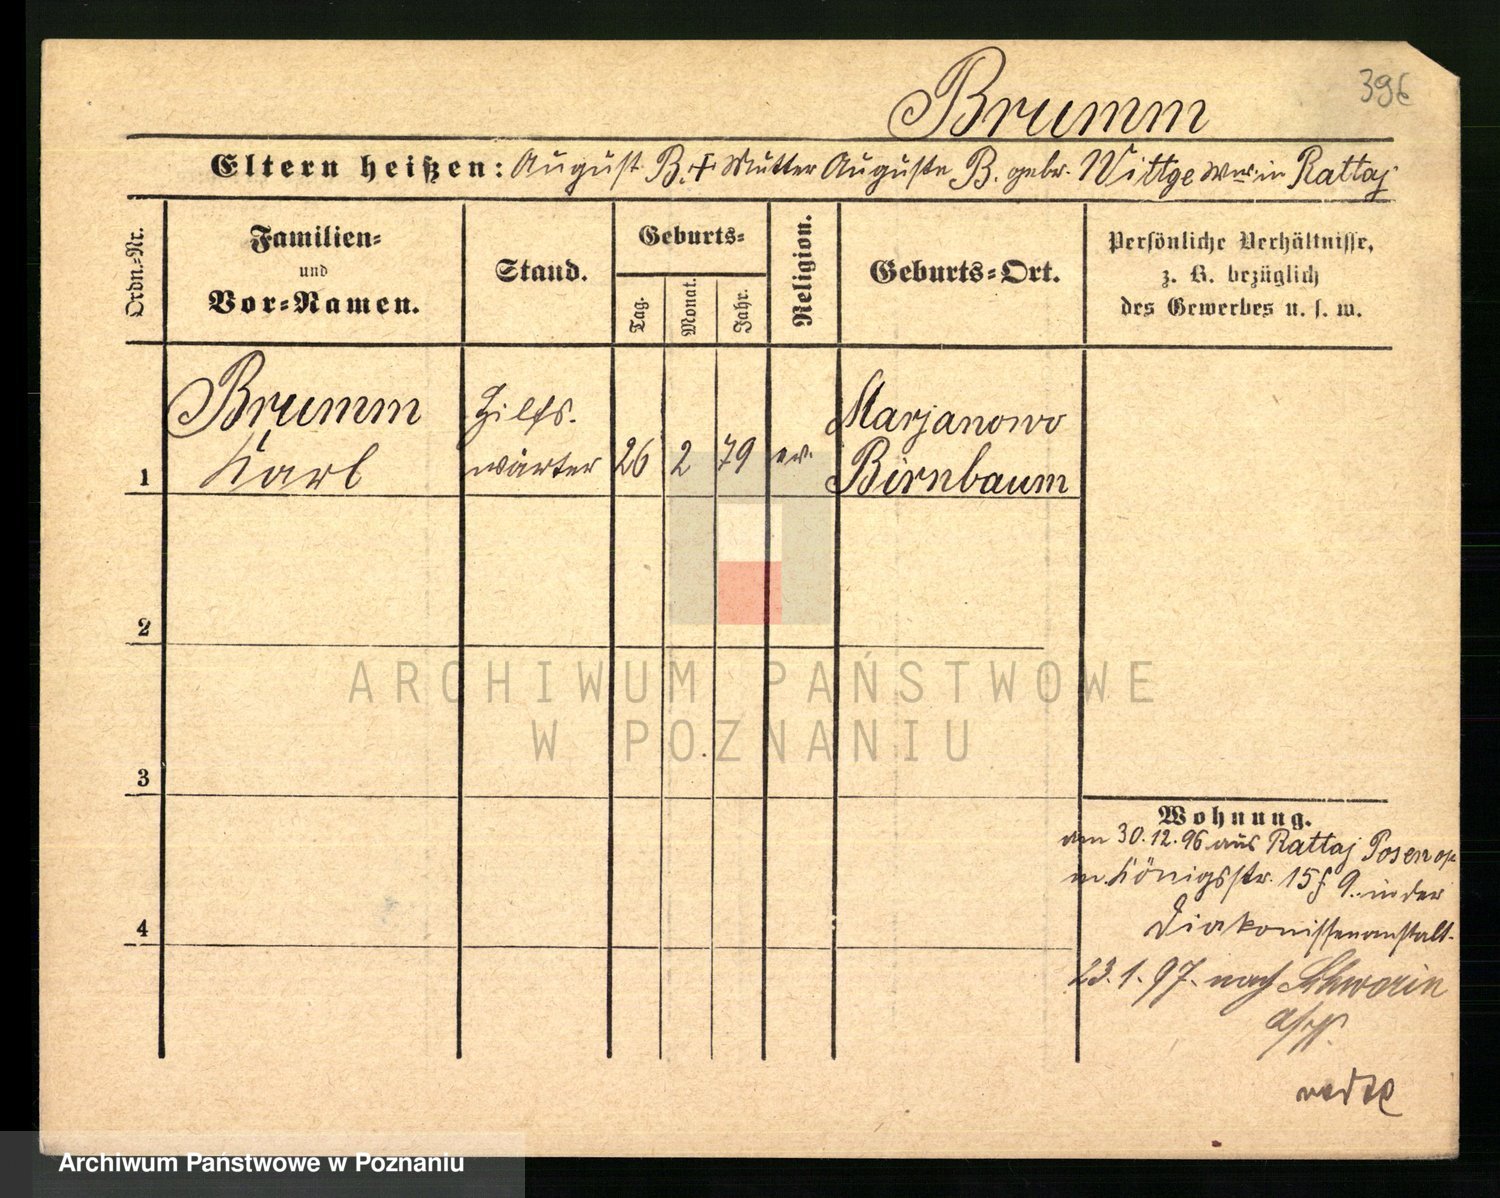 Brumm
396
Eltern heißen: August B. + Mutter Auguste B. gebr. Wittge Ww. in Rattaj
Ordn.-Nr.
Familien-
und
Vor-Namen.
Stand.
Geburts-
Tag.
Monat.
Jahr.
Religion.
Geburts-Ort.
Persönliche Verhältnisse,
z. B. bezüglich
des Gewerbes u. s. w.
Brumm
Karl
Hilfs-
wärter
26
2
79
ev.
Marjanowo
Birnbaum
1
2
3
4
ARCHIWUM PAŃSTWOWE
W POZNANIU
Wohnung.
am 30.12.96 aus Rattaj Posen
Königsstr. 15 in der
Diakonissenanstalt.
23.1.97. nach Schwerin
Archiwum Państwowe w Poznaniu